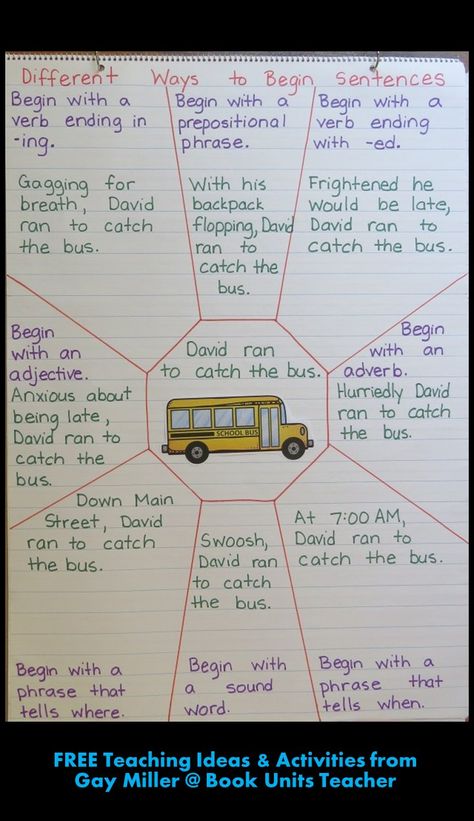 Different Ways to Begin Sentences
Begin with a
verb ending in
-ing.
Gagging for
breath, David
ran to catch
the bus.
Begin with a
prepositional
phrase.
With his
backpack
flopping, David
ran to
catch the
bus.
Begin with a
verb ending
with -ed.
Frightened he
would be late,
David ran to
catch the bus.
Begin
with an
adjective.
Anxious about
being late,
David ran to
catch the
bus.
David ran
to catch the bus.
SCHOOL BUS
Begin
with an
adverb.
Hurriedly David
ran to catch
the bus.
Down Main
Street, David
ran to catch
the bus.
Begin with a
phrase that
tells where.
Swoosh,
David ran
to catch
the bus.
Begin with
a sound
word.
At 7:00 AM,
David ran to
catch the bus.
Begin with a
phrase that
tells when.
FREE Teaching Ideas & Activities from
Gay Miller @ Book Units Teacher